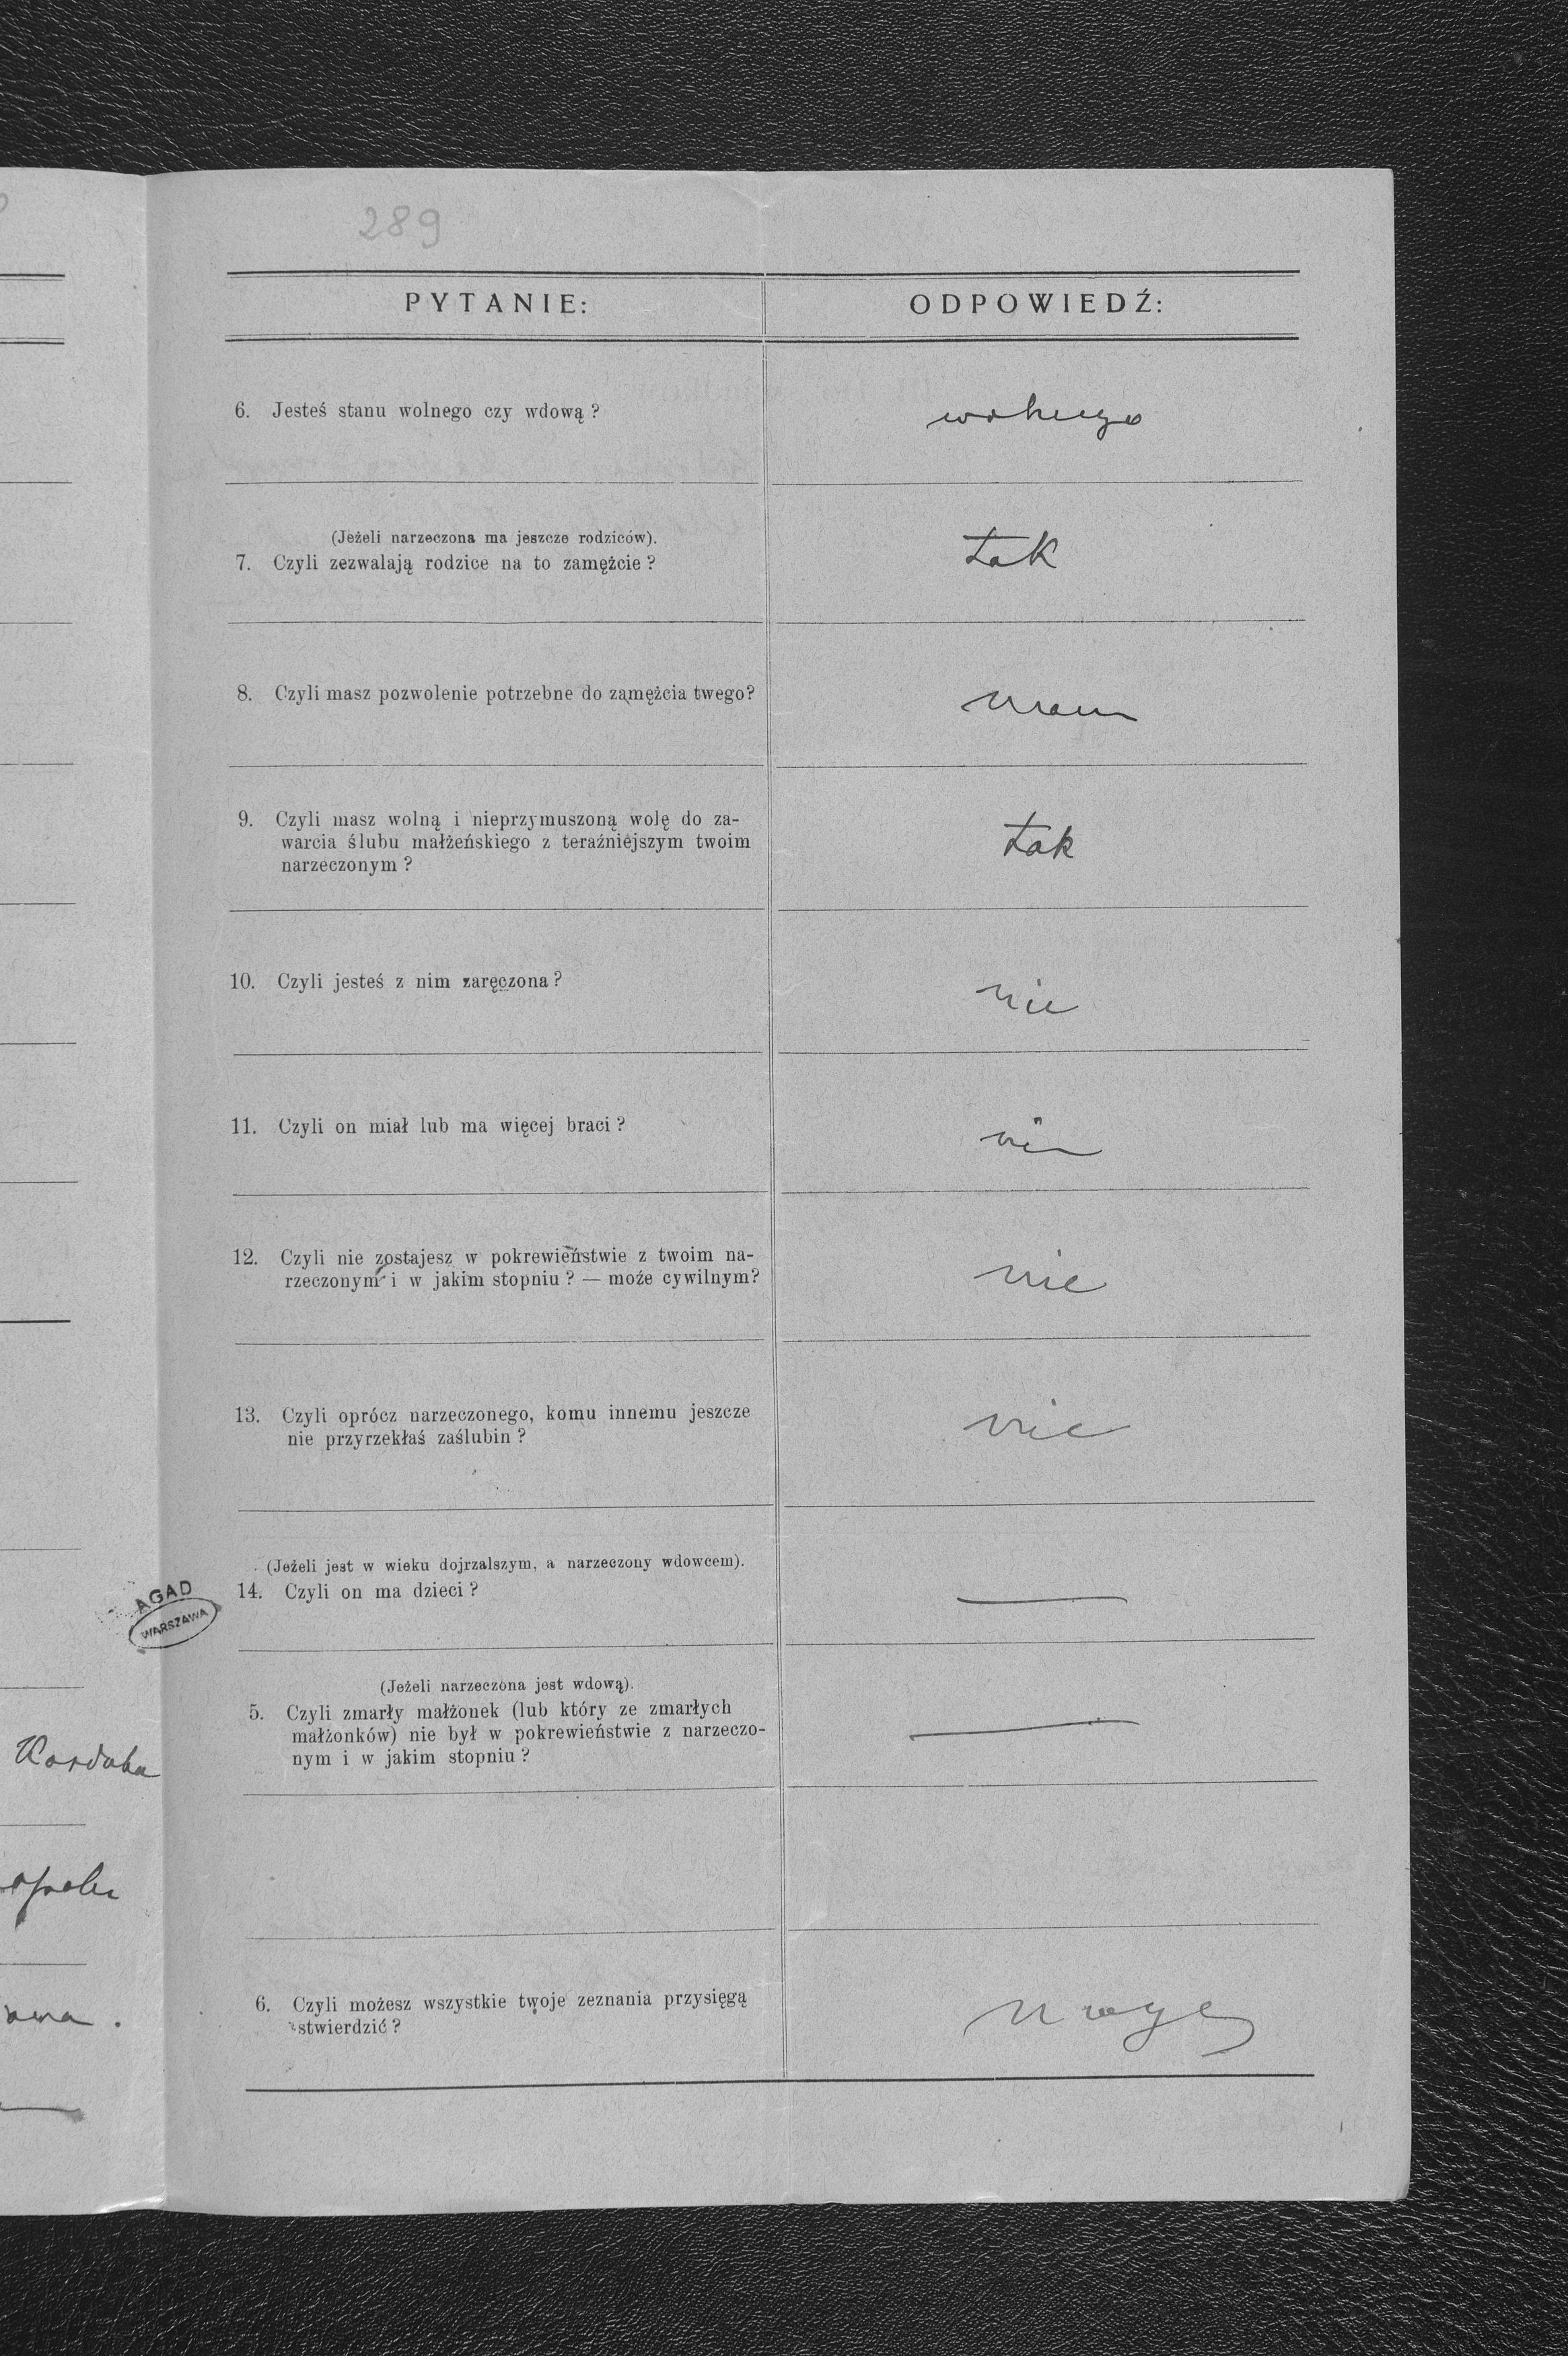 289
PYTANIE:
ODPOWIEDŹ:
6. Jesteś stanu wolnego czy wdową?
wolnego
(Jeżeli narzeczona ma jeszcze rodziców).
7. Czyli zezwalają rodzice na to zamężcie?
tak
8. Czyli masz pozwolenie potrzebne do zamężcia twego?
mam
9. Czyli masz wolną i nieprzymuszoną wolę do za-
warcia ślubu małżeńskiego z teraźniejszym twoim
narzeczonym?
tak
10. Czyli jesteś z nim zaręczona?
nie
11. Czyli on miał lub ma więcej braci?
nie
12. Czyli nie zostajesz w pokrewieństwie z twoim na-
rzeczonym i w jakim stopniu? — może cywilnym?
nie
13. Czyli oprócz narzeczonego, komu innemu jeszcze
nie przyrzekłaś zaślubin?
nie
(Jeżeli jest w wieku dojrzalszym, a narzeczony wdowcem).
14. Czyli on ma dzieci?
—
AGAD
WARSZAWA
(Jeżeli narzeczona jest wdową).
5. Czyli zmarły małżonek (lub który ze zmarłych
małżonków) nie był w pokrewieństwie z narzeczo-
nym i w jakim stopniu?
—
6. Czyli możesz wszystkie twoje zeznania przysięgą
stwierdzić?
mogę